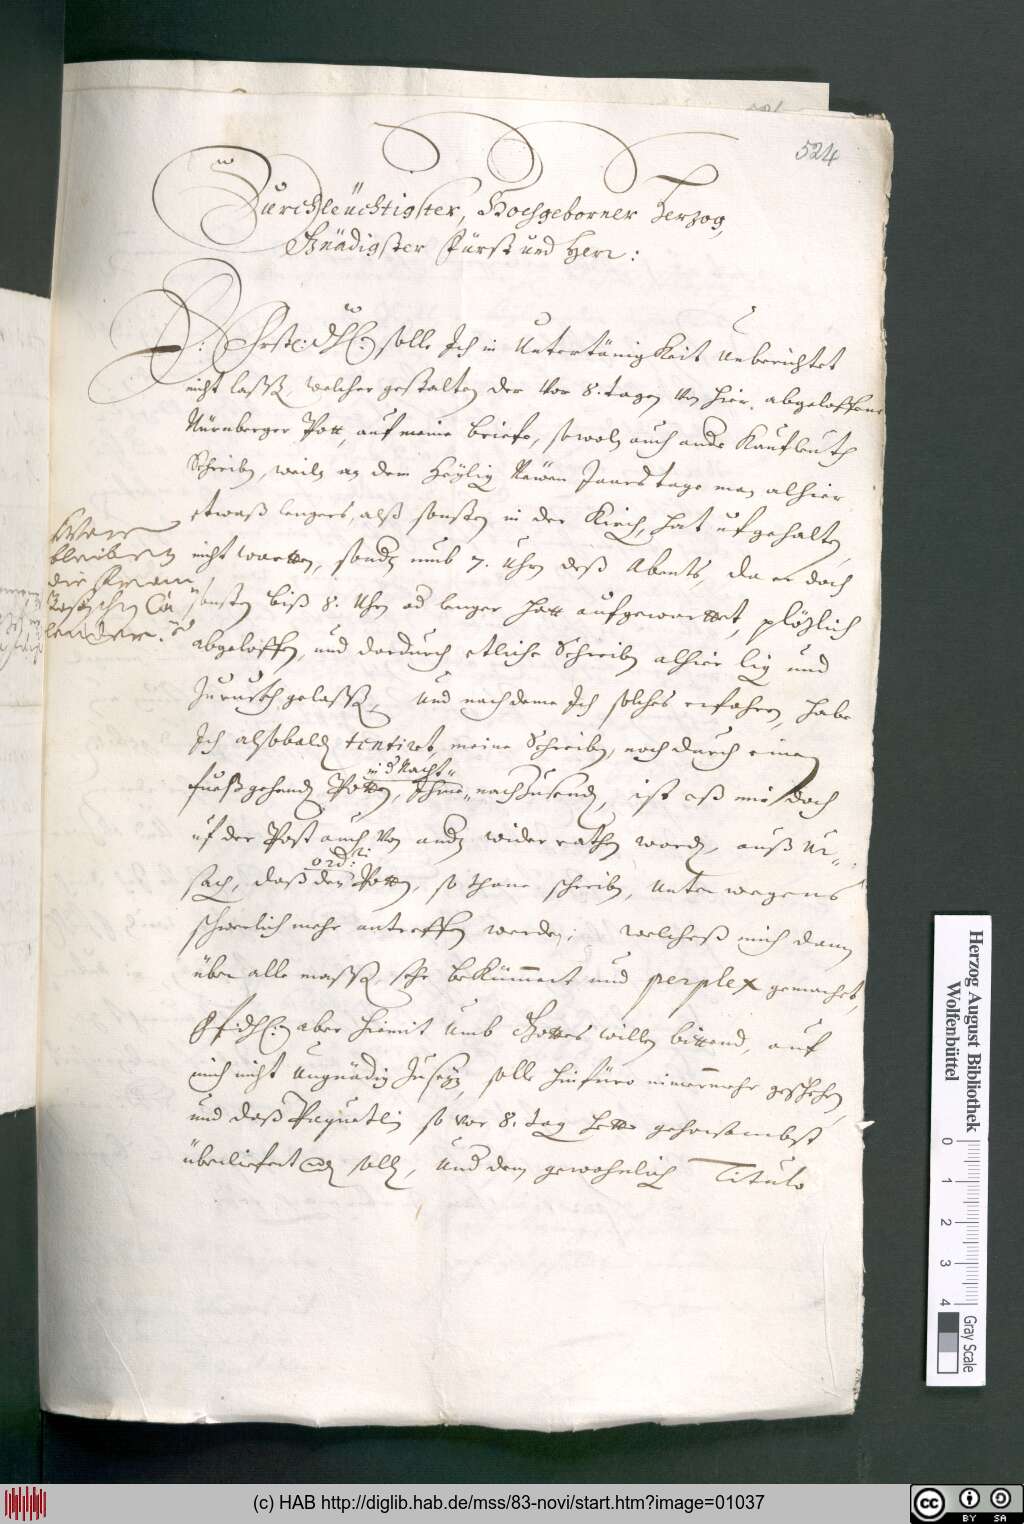 524
Durchleüchtigster, Hochgeborner Herzog,
Gnädigster Fürst und Herr:
solle Ich in Untertänigkeit Unberichtet
nicht lassen, welcher gestalten der vor 8. tagen von hier abgeloffene
Nürnberger Pott, auf meine briefe, sowoln auch andr Kaufleuth
Schreiben, weiln an dem Heylig Newen Jaarstage man alhier
etwaß lengers, alß sonsten in der Kirch, hat ufgehalten,
nicht warten, sondern umb 7. Uhrn deß Abents, da er doch
sonsten biß 8. Uhrn od lenger hatt aufgewarttet, plözlich
abgeloffen, und dardurch etliche Schreiben alhier lig und
Zuruckh gelassen, Und nachdeme Ich solches erfahren, habe
Ich alsobalden tentiret, meine Schreiben, noch durch einen
in d Nacht
fueßgehenden Potten, Ihme nachzusenden, ist eß mir doch
uf der Post auch von andern widerrathen worden, auß Ur„
ord:ri
sach, daß der Potten, so thane schreiben, Unterwegens
schwerlich mehr antreffen werde; welcheß mich dann
über alle massen sehr bekümmert und perplex gemachet,
aber hiemit Umb Gottes willen bittend, auf
mich nicht Ungnädig Zuseyn, solle hinfüro nimermehr geschehen,
und daß Paquetlin so vor 8. tag hette gehorsambst
überliefert werden sollen, Und dem gewohnlich Titulo
bleiben
die
lender.
Herzog August Bibliothek
Wolfenbüttel
0 1 2 3 4
Gray Scale
(c) HAB http://diglib.hab.de/mss/83-novi/start.htm?image=01037
cc BY SA